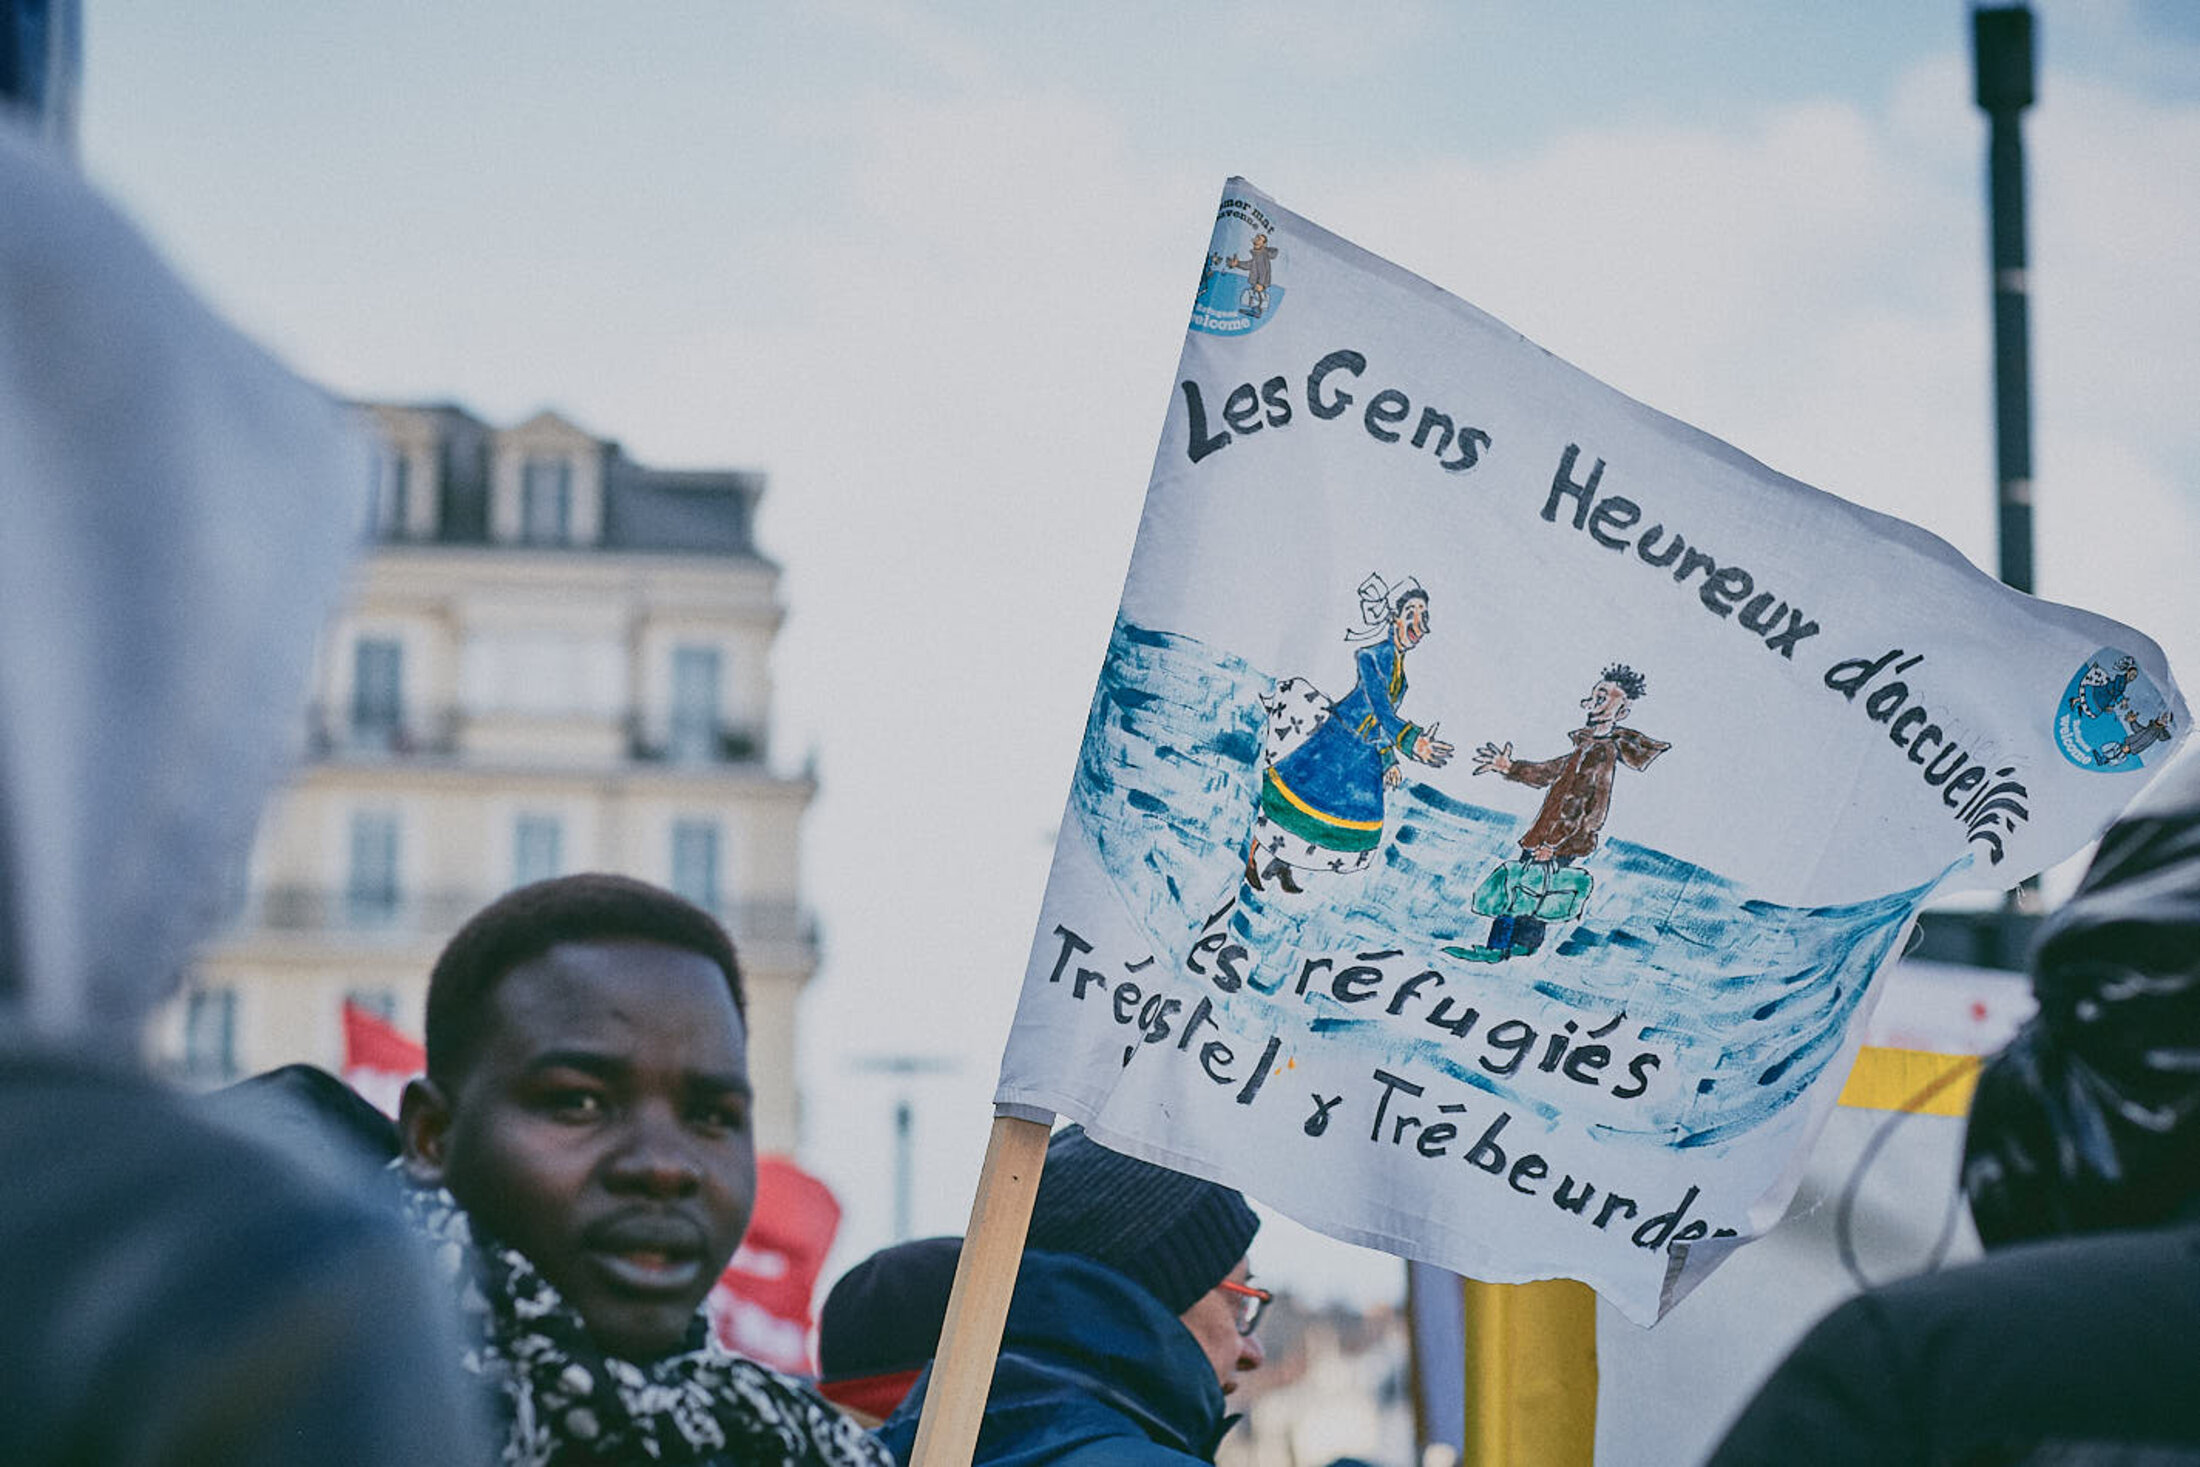 Les Gens Heureux d'accueillir
les réfugiés
Trégastel & Trébeurden
welcome
welcome